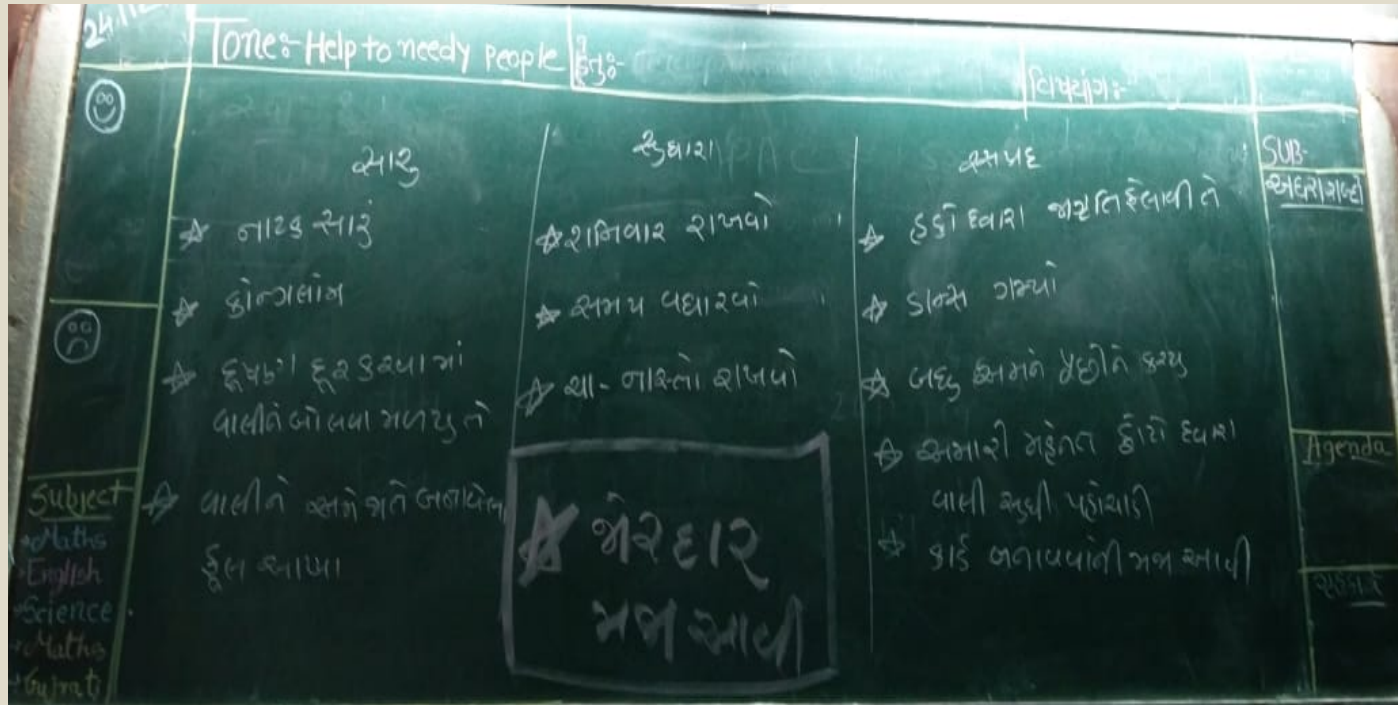 Tone:- Help to needy people
હેતુ:-
વિષયાંગ:-
સારુ
★ નાટક સારું
★ દૂષણો દૂર કરવામાં
વાલીને બોલવા મળ્યુ તે
★ વાલીને અમે જાતે બનાવેલ
ફૂલ આપ્યા
સુધારા
★ શનિવાર રાખવો
★ સમય વધારવો
★ ચા-નાસ્તો રાખવો
★ જોરદાર
મજા આવી
★ હકો દ્વારા જાગૃતિ ફેલાવી તે
★ ડાન્સ ગમ્યો
★ બધુ અમને પૂછીને કર્યુ
★ અમારી મહેનત ફોટો દ્વારા
વાલી સુધી પહોચાડી
★ કાર્ડ બનાવવાની મજા આવી
SUB-
અઘરા શબ્દો
Agenda
Subject
Maths
English
Science
Maths
Gujrati